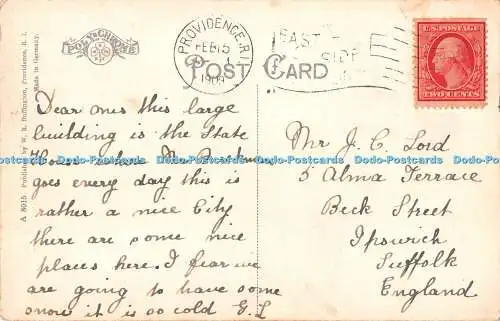 POLYCHROME
PROVIDENCE, R.I.
FEB 15
1909
EAST
SIDE
U.S. POSTAGE
TWO CENTS
POST CARD
A 8015 Published by W. R. Buffington, Providence, R. I.
Made in Germany.
Dear ones this large
building is the State
House where Mr
goes every day this is
rather a nice City
there are some nice
places here. I fear we
are going to have some
snow it is so cold G.L
Mr J. C. Lord
5 Alma Terrace
Beck Street
Ipswich
Suffolk
England
Dodo-Postcards Dodo-Postcards Dodo-Postcards Dodo-Postcards Dodo-Postcards
Dodo-Postcards Dodo-Postcards Dodo-Postcards Dodo-Postcards Dodo-Postcards